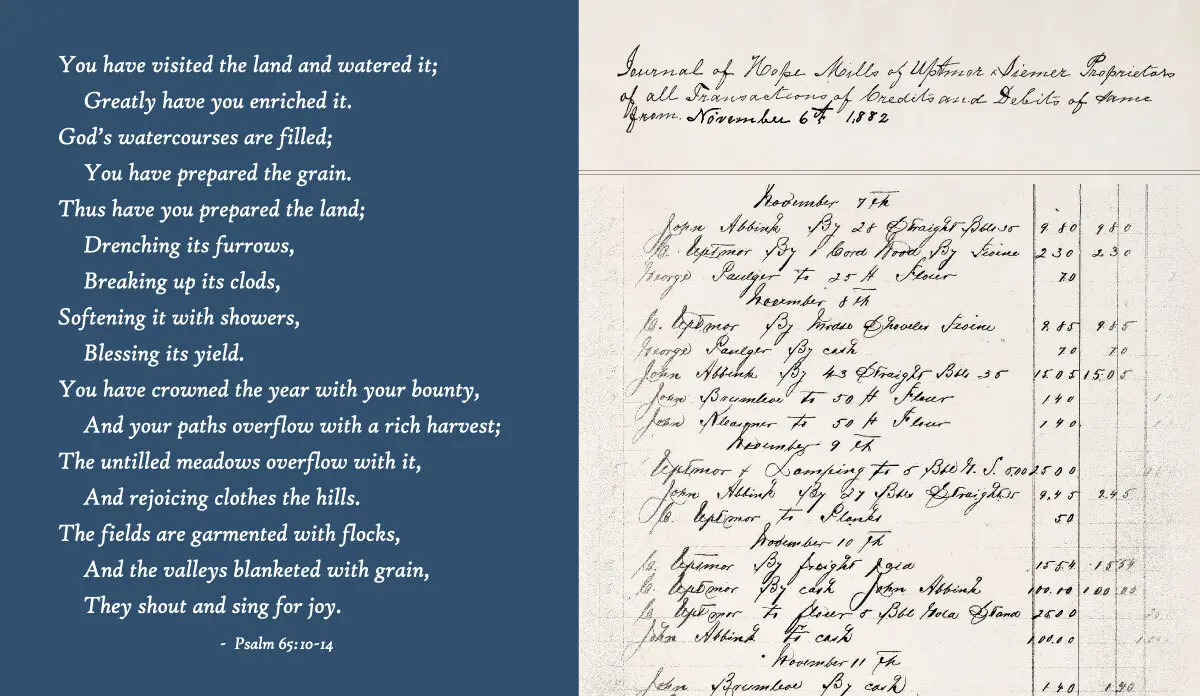 You have visited the land and watered it;
Greatly have you enriched it.
God's watercourses are filled;
You have prepared the grain.
Thus have you prepared the land;
Drenching its furrows,
Breaking up its clods,
Softening it with showers,
Blessing its yield.
You have crowned the year with your bounty,
And your paths overflow with a rich harvest;
The untilled meadows overflow with it,
And rejoicing clothes the hills.
The fields are garmented with flocks,
And the valleys blanketed with grain,
They shout and sing for joy.
- Psalm 65:10-14
Journal of Hope Mills of Uptmor & Siemer Proprietors
of all Transactions of Credits and Debits of same
from November 6th 1882
November 7th
John Abbink By 28 Straight Bbls 35 9 80 9 80
C. Uptmor By 1 Cord Wood By 2 30 2 30
George Paulger to 25 # Flour 70
November 8th
C. Uptmor By Shovels 9.85 9.85
George Paulger By cash 70 70
John Abbink By 43 Straight Bbls 35 15.05 15.05
John Brumleve to 50 # Flour 1 40
John to 50 # Flour 1 40
November 9th
Uptmor & Lamping to 5 Bbl 5.00 25 00
John Abbink By 27 Bbls Straights 9.45 9.45
C. Uptmor to Planks 50
November 10th
C. Uptmor By freight paid 15 54 15 54
C. Uptmor By cash John Abbink 100.00 100 00
C. Uptmor to flour 5 Bbl 25 00
John Abbink to cash 100.00
November 11th
John Brumleve By cash 1 40 1 40